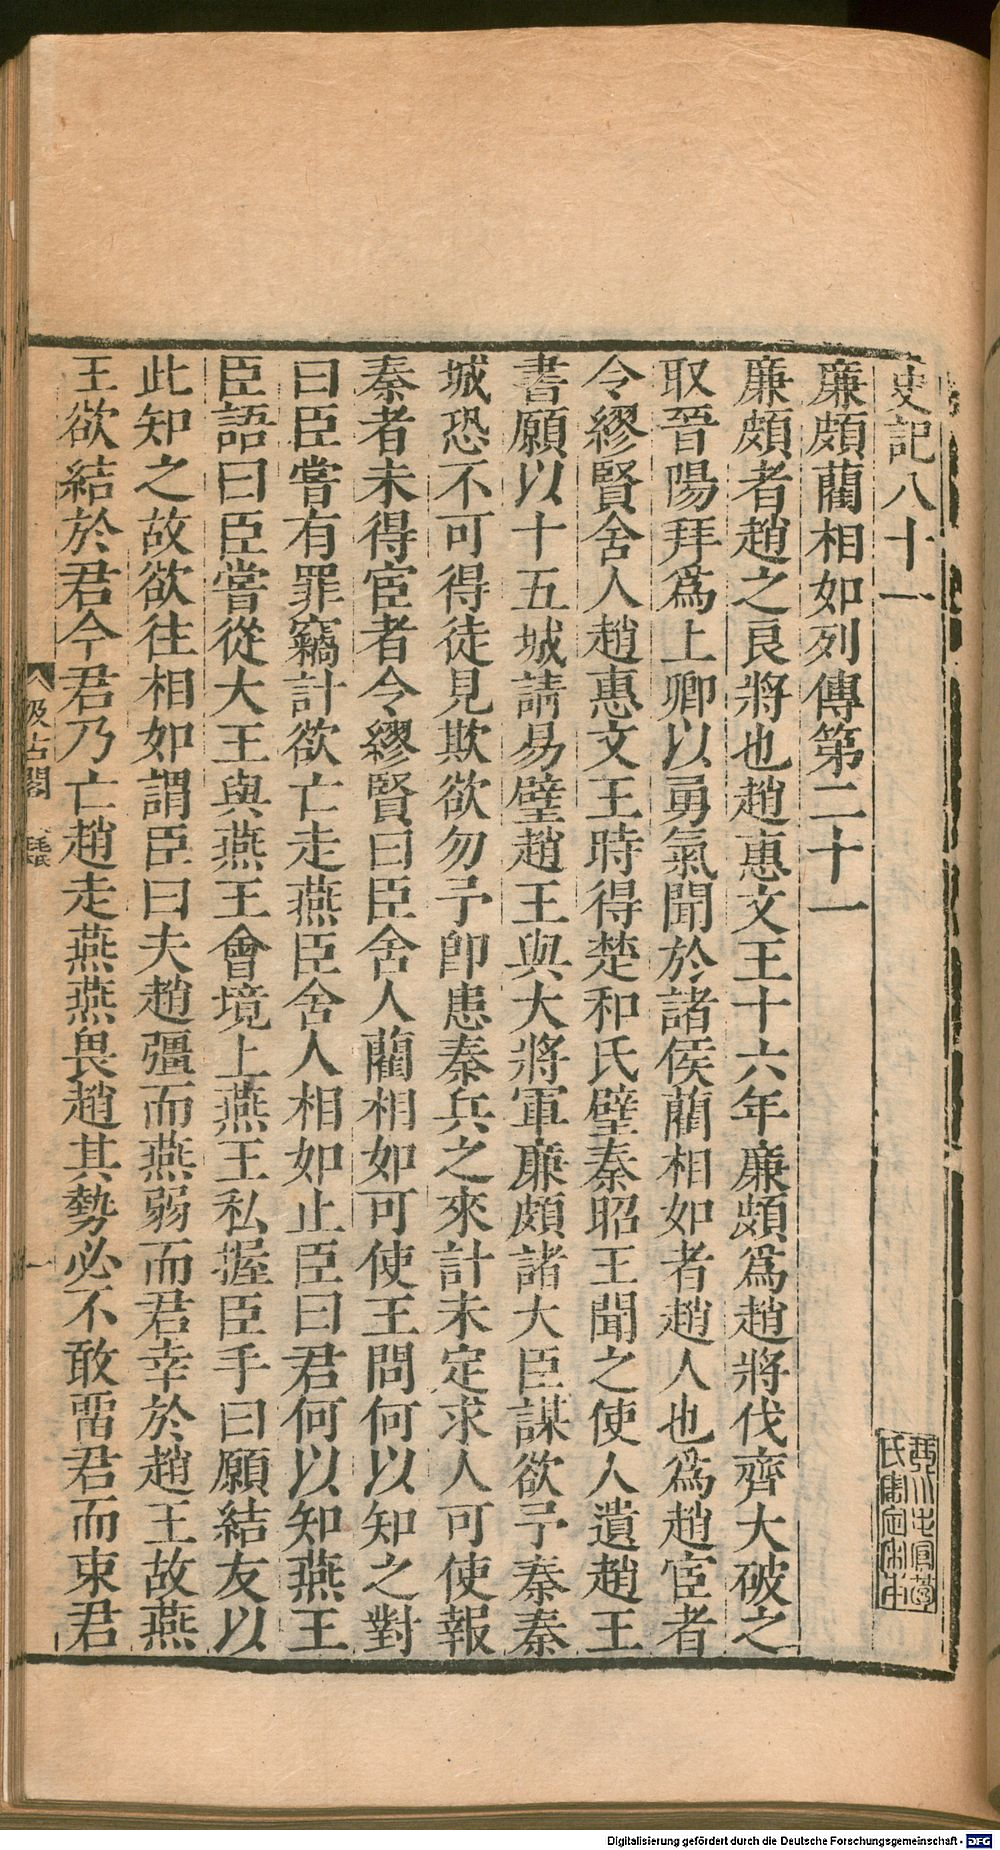 史記八十一
廉頗藺相如列傳第二十一
廉頗者趙之良將也趙惠文王十六年廉頗爲趙將伐齊大破之
取晉陽拜爲上卿以勇氣聞於諸侯藺相如者趙人也爲趙宦者
令繆賢舍人趙惠文王時得楚和氏璧秦昭王聞之使人遺趙王
書願以十五城請易璧趙王與大將軍廉頗諸大臣謀欲予秦秦
城恐不可得徒見欺欲勿予卽患秦兵之來計未定求人可使報
秦者未得宦者令繆賢曰臣舍人藺相如可使王問何以知之對
曰臣嘗有罪竊計欲亡走燕臣舍人相如止臣曰君何以知燕王
臣語曰臣嘗從大王與燕王會境上燕王私握臣手曰願結友以
此知之故欲往相如謂臣曰夫趙彊而燕弱而君幸於趙王故燕
王欲結於君今君乃亡趙走燕燕畏趙其勢必不敢畱君而束君
汲古閣
毛氏
一
Digitalisierung gefördert durch die Deutsche Forschungsgemeinschaft - DFG